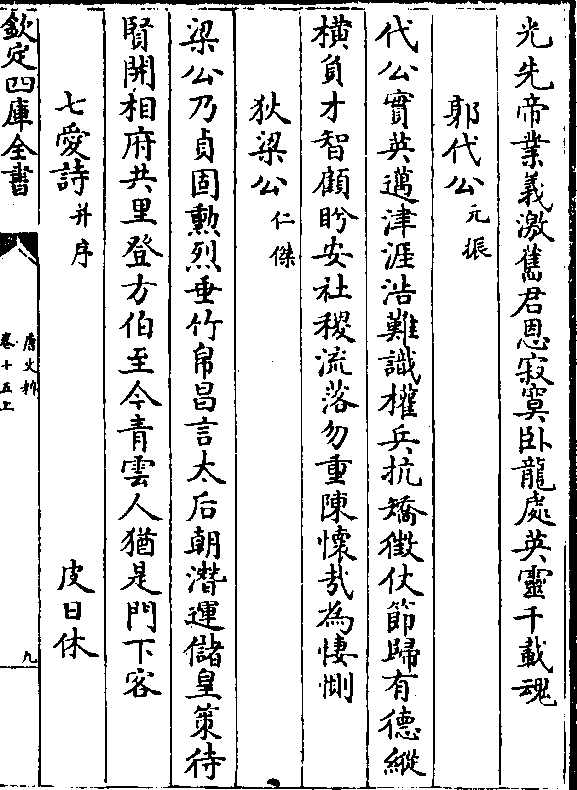 光先帝業義激舊君恩寂寞卧龍處英靈千載魂
郭代公元振
代公實英邁津涯浩難識權兵抗矯徵仗節歸有德縱
橫負才智顧盻安社稷流落勿重陳懷哉為悽惻
狄梁公仁傑
梁公乃貞固勲烈垂竹帛昌言太后朝潛運儲皇策待
賢開相府共里登方伯至今青雲人猶是門下客
七愛詩并序 皮日休
欽定四庫全書
唐文粹
卷十五上
九